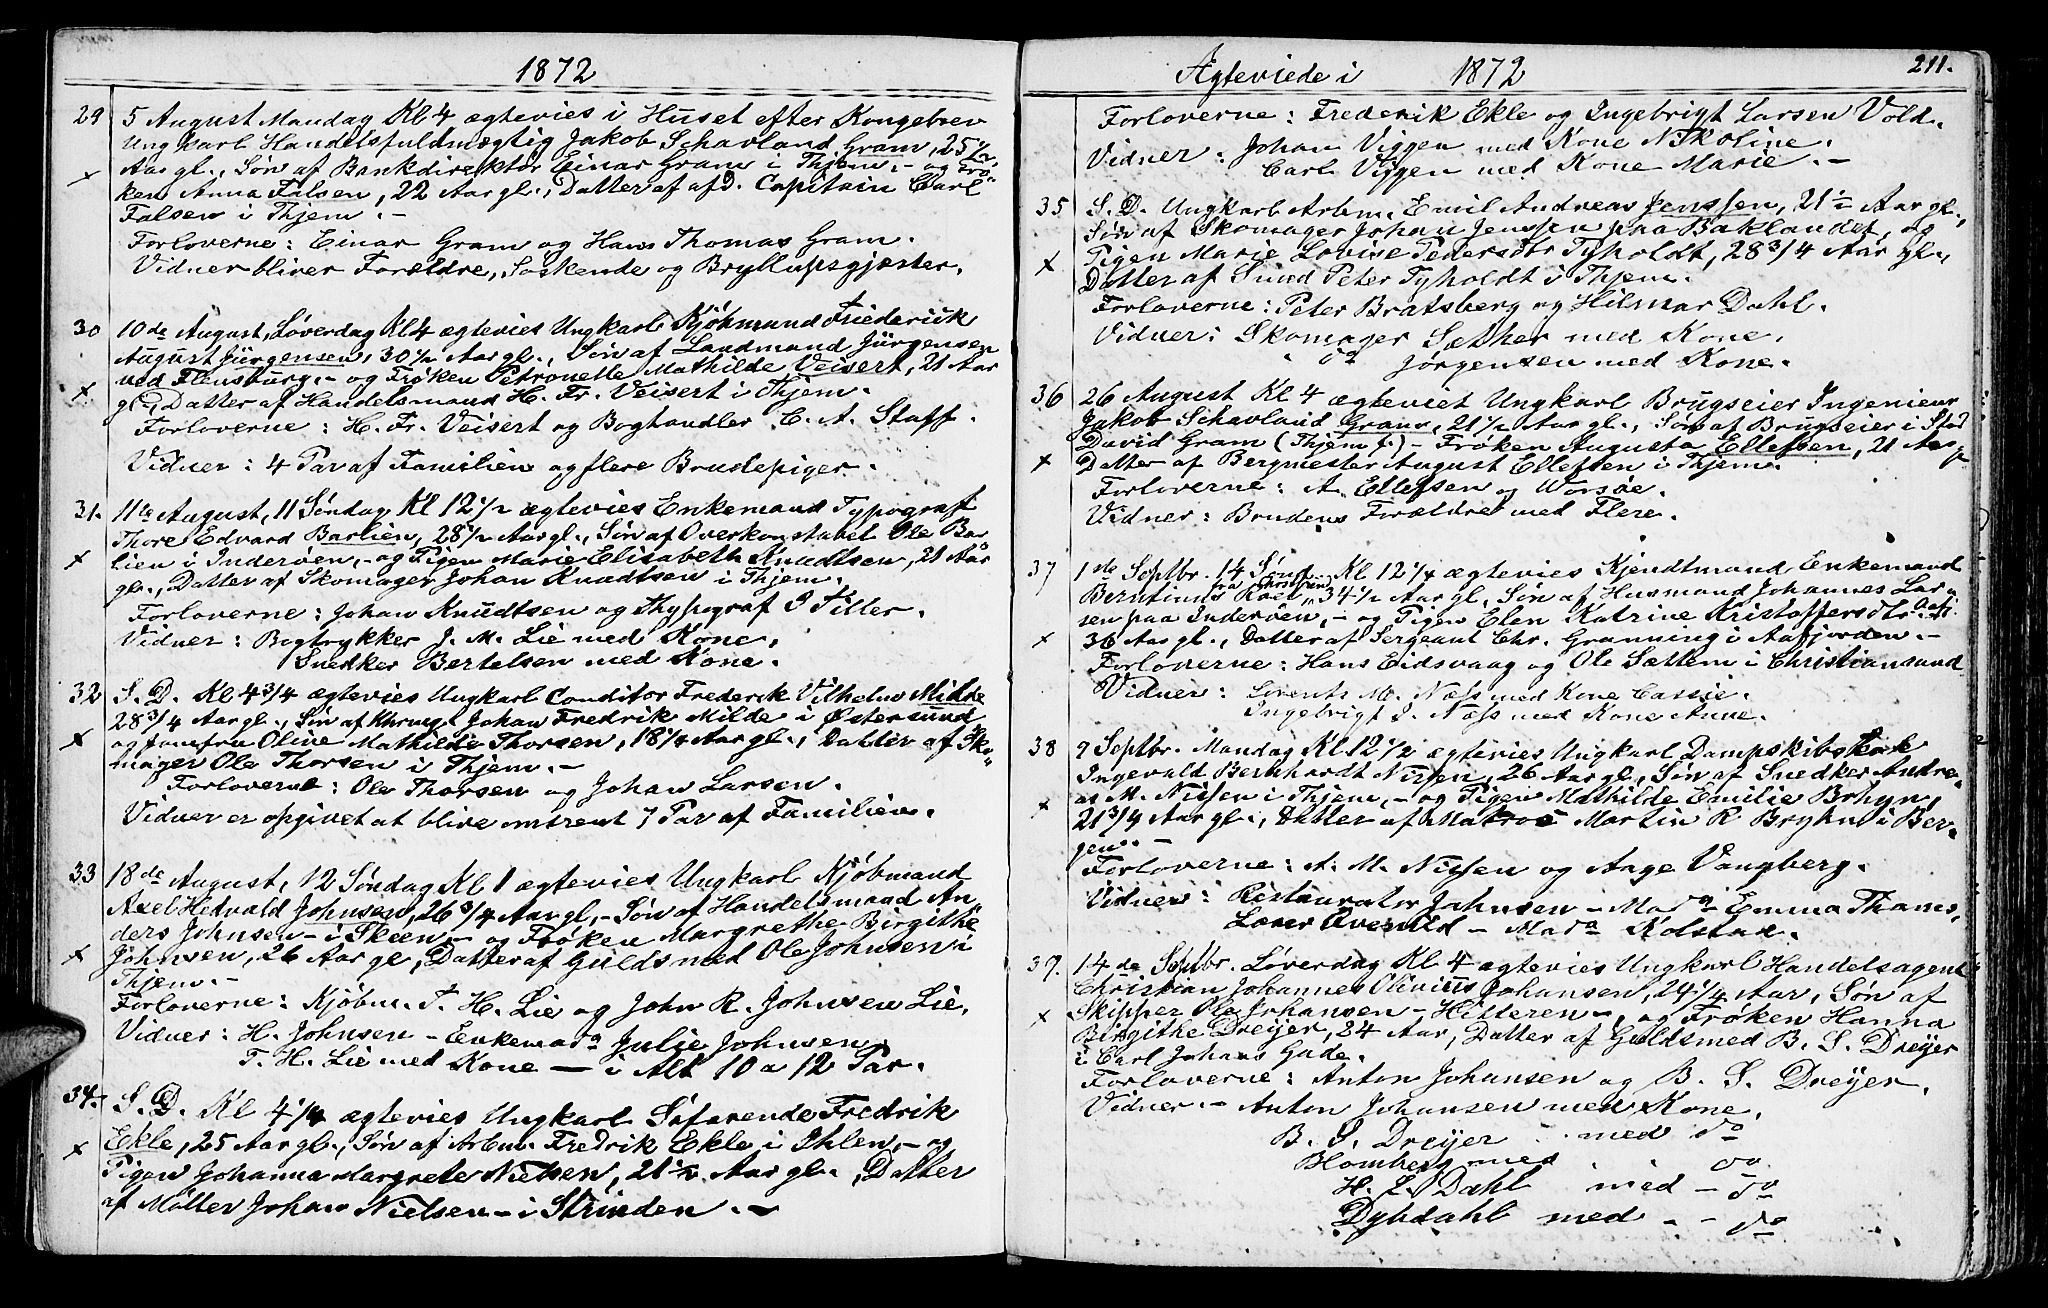 1872
29 5 August Mandag Kl 4 ægtevies i Huset efter Kongebrev
Ungkarl Handelsfuldmægtig Jakob Schavland Gram, 25 1/2
Aar gl., Søn af Bankdirektør Einar Gram i Thjem. – og Frø-
ken Anna Falsen, 22 Aar gl., Datter af afd. Capitain Carl
Falsen i Thjem. –
Forloverne: Einar Gram og Hans Thomas Gram.
Vidner bliver Forældre, Søskende og Bryllupsgjæster.
30 10de August, Løverdag Kl 4 ægtevies Ungkarl Kjøbmand Friederick
August Jürgensen, 30 1/2 Aar gl., Søn af Landmand Jürgensen
ved Flensburg. – og Frøken Petronelle Mathilde Veisert, 21 Aar
gl., Datter af Handelsmand H. Fr. Veisert i Thjem.
Forloverne: H. Fr. Veisert og Boghandler C. A. Staff.
Vidner: 4 Par af Familien og flere Brudepiger.
31. 11te August, 11 Søndag Kl 12 1/2 ægtevies Enkemand Typograf
Thore Edvard Barlien, 28 1/2 Aar gl., Søn af Overkonstabel Ole Bar
lien i Inderøen, – og Pigen Marie Elisabeth Knudtsen, 21 Aar
gl., Datter af Skomager Johan Knudtsen i Thjem.
Forloverne: Johan Knudtsen og Thypograf O Tiller.
Vidner: Bogtrykker J. M. Lie med Kone.
Snedker Bertelsen med Kone.
32 S. D. Kl 4 3/4 ægtevies Ungkarl Conditor Frederik Vilhelm Milde
28 3/4 Aar gl., Søn af Johan Fredrik Milde i Østersund
og Jomfru Oline Mathilde Thorsen, 18 1/4 Aar gl., Datter af Sko-
mager Ole Thorsen i Thjem. –
Forloverne: Ole Thorsen og Johan Larsen.
Vidner er opgivet at blive omtrent 7 Par af Familien.
33 18de August, 12 Søndag Kl 1 ægtevies Ungkarl Kjøbmand
Axel Hedvald Johnsen, 26 3/4 Aar gl, – Søn af Handelsmand An-
ders Johnsen – i Skeen – og Frøken Margrethe Birgithe
Johnsen, 26 Aar gl, Datter af Guldsmed Ole Johnsen i
Thjem. –
Forloverne: Kjøbm. T. H. Lie og John R. Johnsen Lie.
Vidner: H. Johnsen – Enkemada Julie Johnsen.
T. H. Lie med Kone – i Alt 10 a 12 Par.
34. S. D. Kl 4 1/4 ægtevies Ungkarl Søfarende Fredrik
Ekle, 25 Aar gl., Søn af Arbm. Fredrik Ekle i Ihlen, – og
Pigen Johanna Margrete Nielsen, 21 1/2 Aar gl., Datter
af Møller Johan Nielsen – i Strinden. –
Ægteviede i 1872 211.
Forloverne: Frederik Ekle og Ingebrigt Larsen Vold.
Vidner: Johan Viggen med Kone Nikoline.
Carl Viggen med Kone Marie. –
35 S. D. Ungkarl Arbm. Emil Andreas Jenssen, 21 1/2 Aar gl.,
Søn af Skomager Johan Jenssen paa Baklandet, og
Pigen Marie Lovise Pedersdtr Tyholdt, 28 3/4 Aar gl.,
Datter af Smed Peter Tyholdt i Thjem.
Forloverne: Peter Bratsberg og Hilmar Dahl.
Vidner: Skomager Sæther med Kone.
do Jørgensen med Kone.
36 26 August Kl 4 ægteviet Ungkarl Brugseier Ingenieur
Jakob Schavland Gram, 21 1/2 Aar gl., Søn af Brugseier i Stod
David Gram (Thjem f.) – Frøken Augusta Ellefsen, 21 Aar g
Datter af Bergmester August Ellefsen i Thjem.
Forloverne: A. Ellefsen og Worsøe.
Vidner: Brudens Forældre med Flere.
37 1ste Septbr. 14 Sønd. Kl 12 1/4 ægtevies Kjendtmand Enkemand
Berntinus 34 1/2 Aar gl, Søn af Husmand Johannes Lar-
sen paa Inderøen, – og Pigen Elen Katrine Kristoffersdtr
36 Aar gl., Datter af Sergeant Chr. Granning i Aafjorden. –
Forloverne: Hans Eidsvaag og Ole Sættem i Christiansund
Vidner: Lorents M. Næss med Kone Cassie.
Ingebrigt J. Næss med Kone Anne.
38 9 Septbr. Mandag Kl 12 1/2 ægtevies Ungkarl
Ingevald Bernhardt Nissen, 26 Aar gl., Søn af Snedker Andre-
as M. Nissen i Thjem, – og Pigen Mathilde Emilie Brhyn,
21 3/4 Aar gl., Datter af Matros Martin R Bryhn i Ber-
gen. –
Forloverne: A. M. Nissen og Aage Vangberg.
Vidner: Restauratør Johnsen – Mada Emma Thams,
Løser Overvild – Mada Kolstad.
37. 14de Septbr. Løverdag Kl 4 ægtevies Ungkarl Handelsagent
Christian Johannes Olivius Johansen, 24 1/4 Aar, Søn af
Skipper Ole Johansen – Hitteren –, og Frøken Hanna
Birgithe Dreyer, 24 Aar, Datter af Guldsmed B. S. Dreyer
i Carl Johans Gade.
Forloverne: Anton Johansen og B. S. Dreyer.
Vidner. – Anton Johansen med Kone.
B. S. Dreyer – med do
Blomberg med do.
H. L. Dahl med – do
Dybdahl med – do